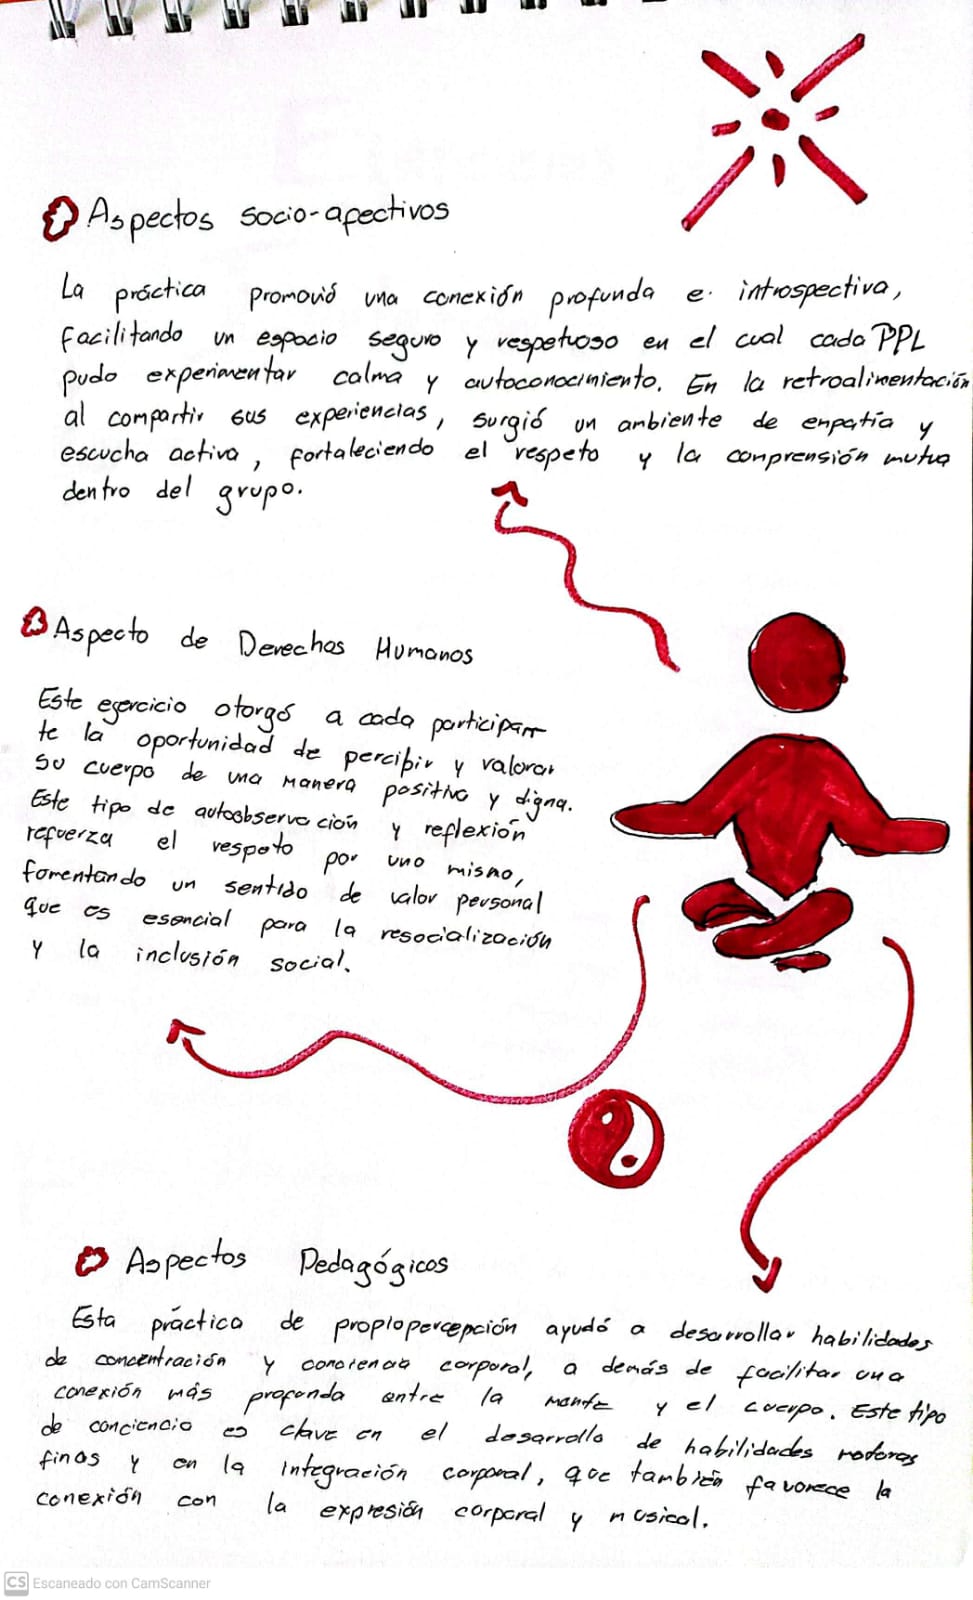 Aspectos socio-afectivos
La práctica promovió una conexión profunda e introspectiva,
facilitando un espacio seguro y respetuoso en el cual cada PPL
pudo experimentar calma y autoconocimiento. En la retroalimentación
al compartir sus experiencias, surgió un ambiente de enpatía y
escucha activa, fortaleciendo el respeto y la conprensión mutua
dentro del grupo.
Aspecto de Derechos Humanos
Este ejercicio otorgó a cada participan
te la oportunidad de percibir y valorar
su cuerpo de una manera positiva y digna.
Este tipo de autoobservación y reflexión
refuerza el respeto por uno mismo,
fomentando un sentido de valor personal
que es esencial para la resocialización
y la inclusión social.
Aspectos Pedagógicos
Esta práctica de propiopercepción ayudó a desarrollar habilidades
de concentración y conciencia corporal, a demás de facilitar una
conexión más profunda entre la mente y el cuerpo. Este tipo
de conciencia es clave en el desarrollo de habilidades motoras
finas y en la integración corporal, que también favorece la
conexión con la expresión corporal y musical.
CS Escaneado con CamScanner